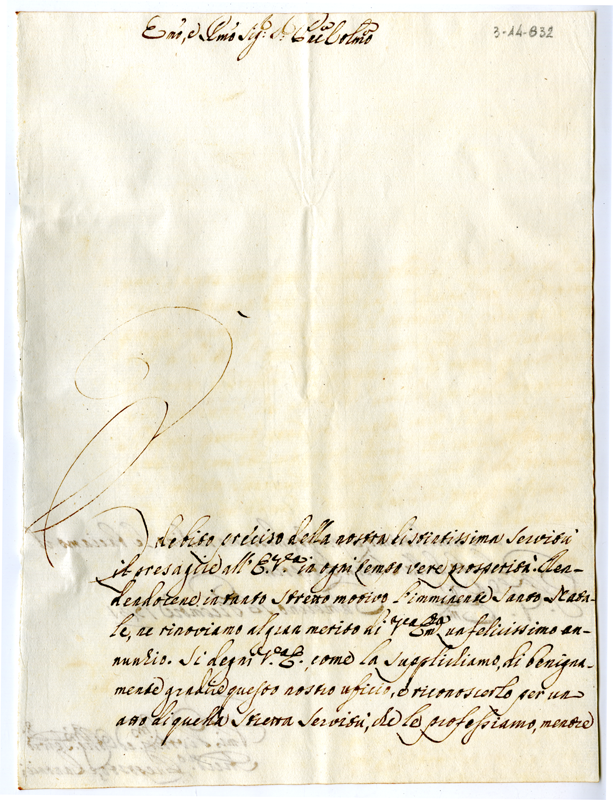 Emõ, e Rmõ Sig.r P.rõn Colmõ
3-14-832
È debito preciso della nostra distintissima servitù
il presagire all' E.V.ra in ogni tempo vere prosperità. Ren-
dendocene intanto stretto motivo l'imminente Santo Nata-
le, ne rinoviamo al gran merito di V.ra Em.za un felicissimo an-
nunzio. Si degni V.ra E., come la supplichiamo, di benigna-
mente gradire questo nostro ufficio, e riconoscerlo per un
atto di quella stretta servitù, che le professiamo, mentre